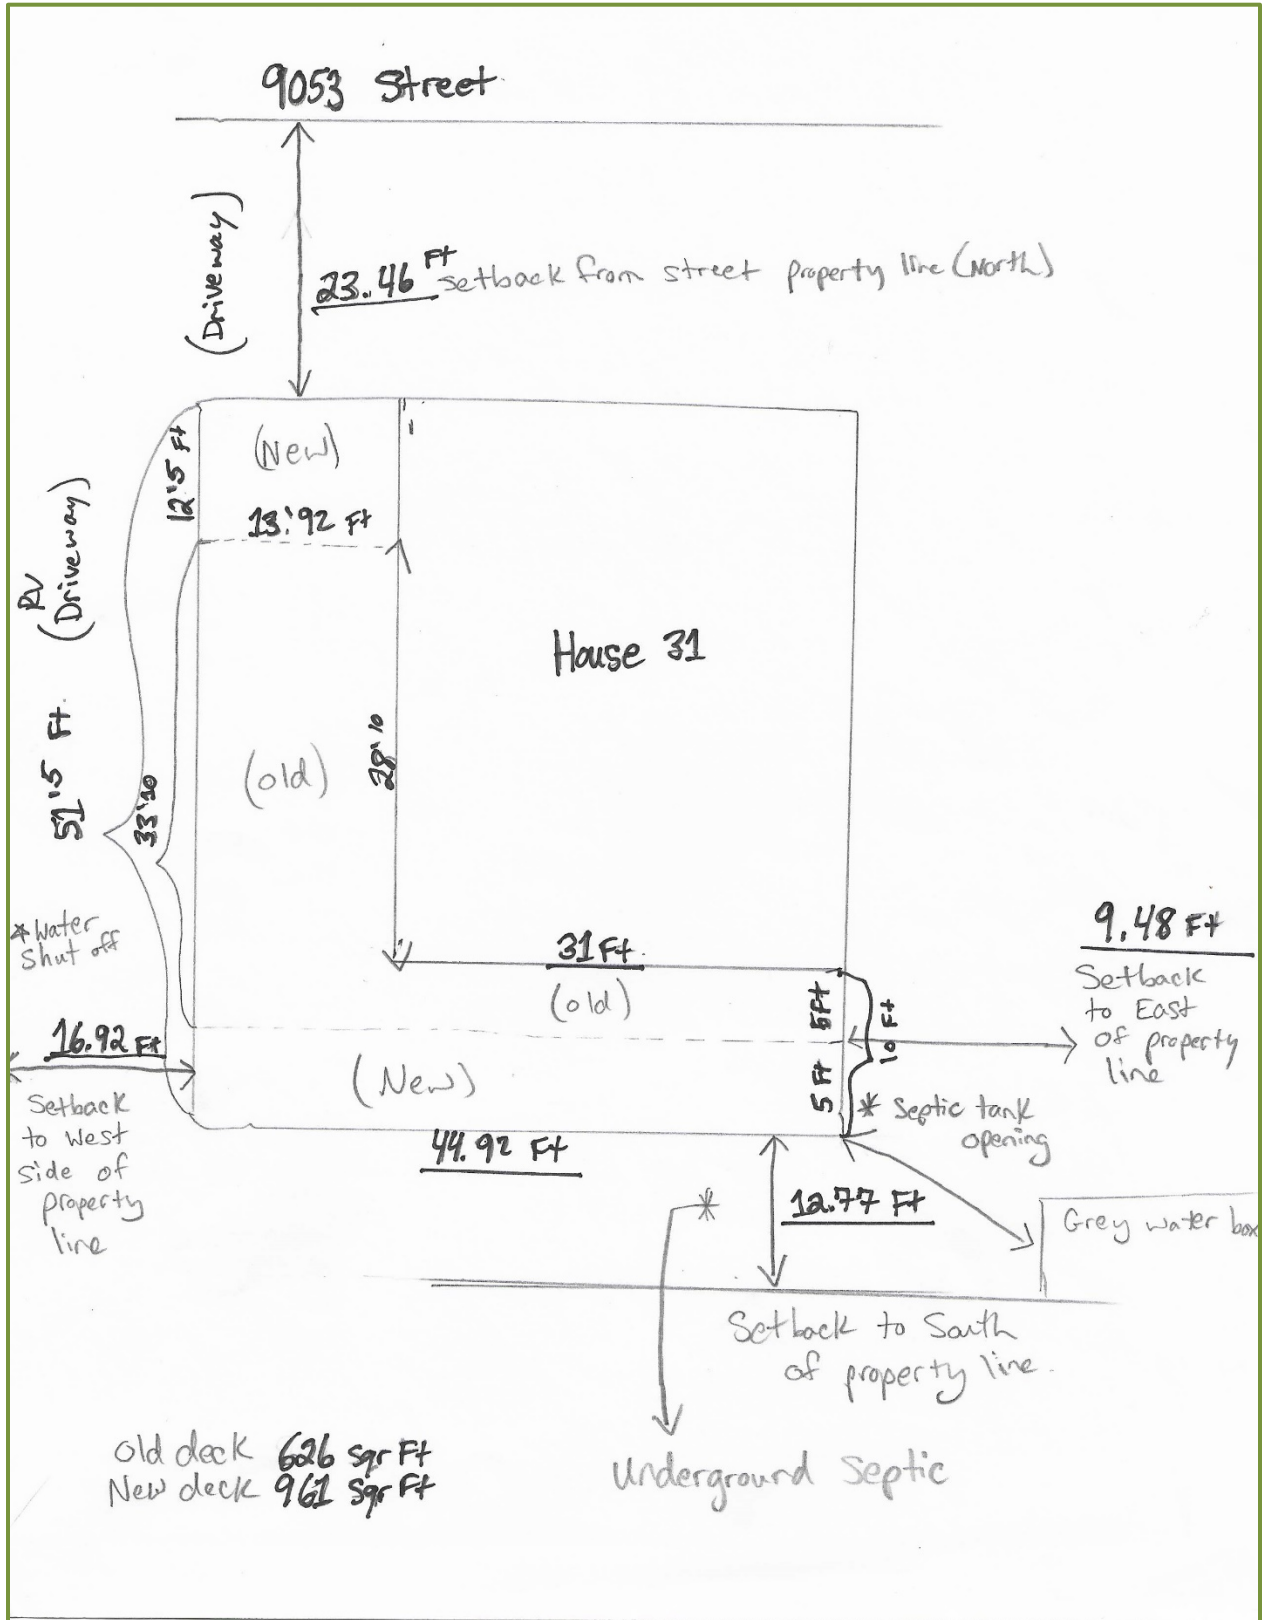 9053 Street
(Driveway)
23.46 Ft setback from street property line (North)
(New)
12'5 Ft
13'92 Ft
RV
(Driveway)
House 31
51'5 Ft.
33'10
(old)
28'10
* Water
shut off
31 Ft
(old)
5Ft
10 Ft
9.48 Ft
Setback
to East
of property
line
16.92 Ft
(New)
5 Ft
Setback
to West
side of
property
line
* Septic tank
opening
44.92 Ft
*
12.77 Ft
Grey water box
Setback to South
of property line.
old deck 626 Sqr Ft
New deck 961 Sqr Ft
Underground Septic